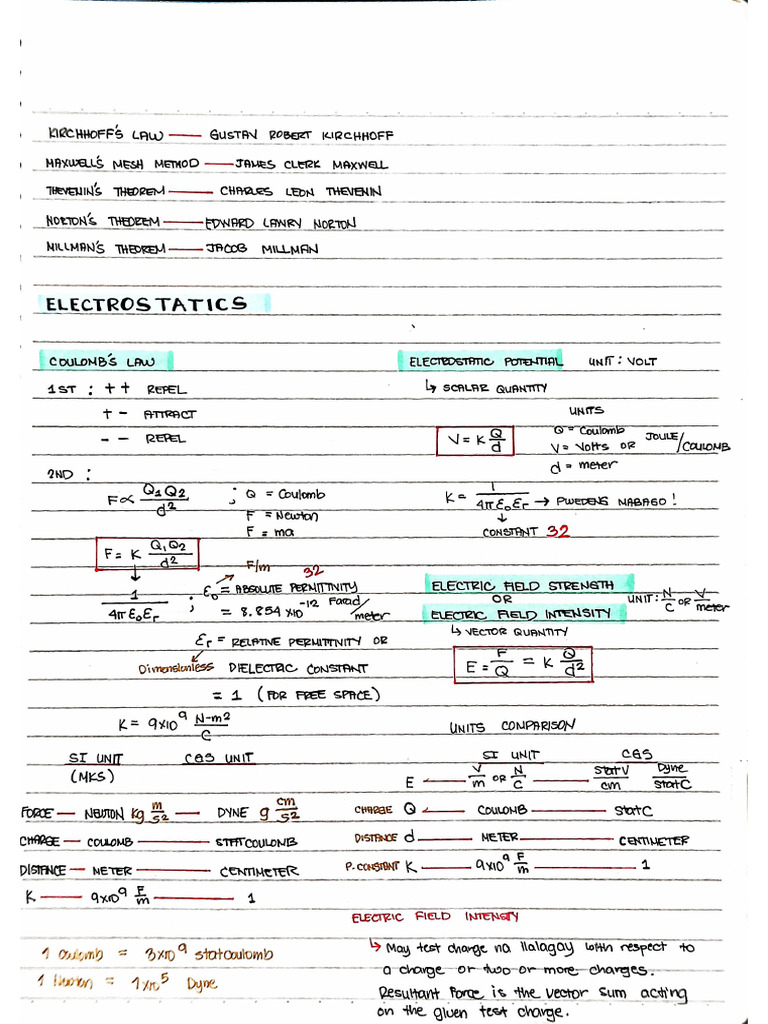 KIRCHHOFF'S LAW — GUSTAV ROBERT KIRCHHOFF
MAXWELL'S MESH METHOD — JAMES CLERK MAXWELL
THEVENIN'S THEOREM — CHARLES LEON THEVENIN
NORTON'S THEOREM — EDWARD LAWRY NORTON
MILLMAN'S THEOREM — JACOB MILLMAN
ELECTROSTATICS
COULOMB'S LAW
1ST : + + REPEL
+ - ATTRACT
- - REPEL
2ND :
F ∝ Q1Q2/d² ; Q = Coulomb
F = Newton
F = ma
F = K Q1Q2/d²
F/m
32
1/4πε0εr ; ε0 = ABSOLUTE PERMITTIVITY
= 8.854 x10⁻¹² Farad/meter
εr = RELATIVE PERMITTIVITY OR
Dimensionless DIELECTRIC CONSTANT
= 1 (FOR FREE SPACE)
K = 9x10⁹ N-m²/C
SI UNIT CGS UNIT
(MKS)
FORCE — NEWTON kg m/s² — DYNE g cm/s²
CHARGE — COULOMB — STATCOULOMB
DISTANCE — METER — CENTIMETER
K — 9x10⁹ F/m — 1
1 coulomb = 3x10⁹ statcoulomb
1 Newton = 1x10⁵ Dyne
ELECTROSTATIC POTENTIAL UNIT : VOLT
↳ SCALAR QUANTITY
UNITS
V = K Q/d
Q = Coulomb
V = Volts OR JOULE/COULOMB
d = meter
K = 1/4πε0εr → PWEDENG MABAGO !
CONSTANT 32
ELECTRIC FIELD STRENGTH
OR
UNIT : N/C OR V/meter
ELECTRIC FIELD INTENSITY
↳ VECTOR QUANTITY
E = F/Q = K Q/d²
UNITS COMPARISON
SI UNIT CGS
E — V/m OR N/C — StatV/cm Dyne/StatC
CHARGE Q — COULOMB — StatC
DISTANCE d — METER — CENTIMETER
P. CONSTANT K — 9x10⁹ F/m — 1
ELECTRIC FIELD INTENSITY
↳ May test charge na ilalagay with respect to
a charge or two or more charges.
Resultant Force is the vector sum acting
on the given test charge.